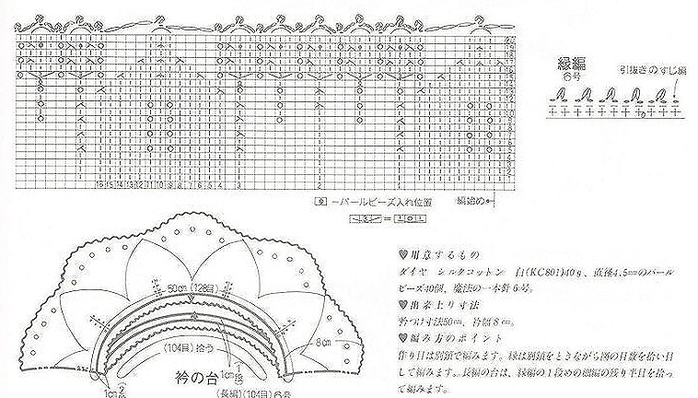 縁編
6号
引抜きのすじ編
16 15 14 13 12 11 10 9 8 7 6 5 4 3 2 1
-パールビーズ入れ位置
編始め
50cm(128目)
8cm
(104目)拾う
衿の台
1cm
1cm
(長編)(104目)6号
♥用意するもの
ダイヤ シルクコットン 白(KC801)40g、直径4.5㎜のパール
ビーズ40個、魔法の一本針6号。
♥出来上り寸法
衿つけ寸法50㎝、衿幅8㎝。
♥編み方のポイント
作り目は別鎖で編みます。縁は別鎖をときながら図の目数を拾い目
して編みます。長編の台は、縁編の1段めの細編の残り半目を拾っ
て編みます。